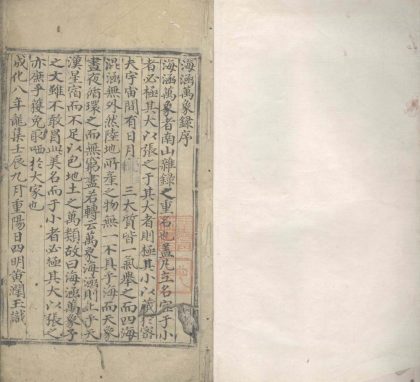 海涵萬象錄序
海涵萬象者南山雜錄之重名也蓋凡立名定于小
者必極其大以張之于其大者則極其小以藏
夫宇宙間有日月 三大質皆一氣舉之而四海
混涵無外然陸地所產之物無一不具于海而天象
晝夜循環之而無窮盡若轉云萬象海涵則上乎天
漢星宿而不足以包地土之萬類故曰海涵萬象予
之文雖不敢當此美名而于小者必極其大以張之
亦庶乎獲免取哂於大家也
成化八年龍集壬辰九月重陽日四明黃潤玉識